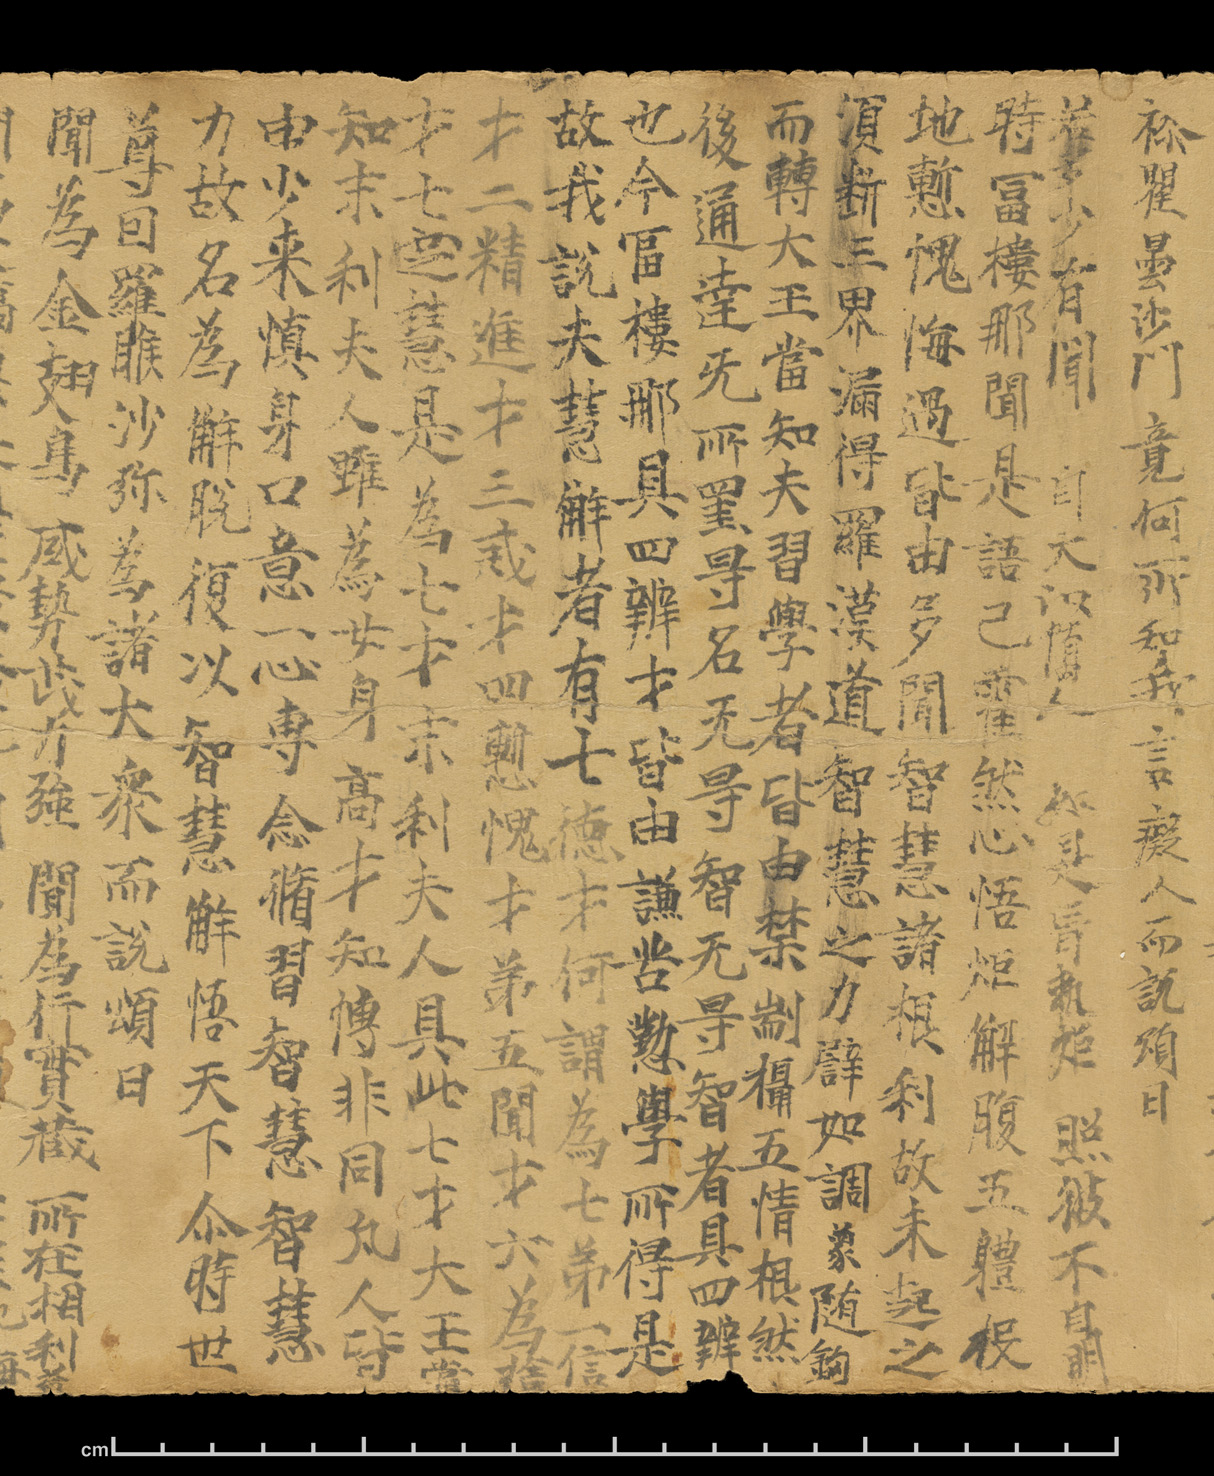 襰瞿曇沙門竟何所知我言癡人而說頌曰
若多少有聞 自大以憍人 如是盲執炬 照彼不自明
時冨樓那聞是語已霍然心悟炬解腹五軆投
地慙愧悔過皆由多聞智慧諸根利故未起之
湏斷三界漏得羅漢道智慧之力譬如調象隨鉤
而轉大王當知夫習學者皆由禁制攝五情根然
後通達无所罣㝵名无㝵智无㝵智者具四辯
也今冨樓那具四辯才皆由謙苦懃學所得是
故我說夫慧解者有七德才何謂為七第一信
才二精進才三戒才四慙愧才第五聞才六為捨
才七定慧是為七才末利夫人具此七才大王當
知末利夫人雖為女身高才知博非同凡人皆
由少来慎身口意一心專念脩習智慧智慧
力故名為解脫復以智慧解悟天下尒時世
尊回羅睺沙弥為諸大衆而說頌曰
聞為金翅鳥 威勢武力強 聞為行寶藏 所在相利益